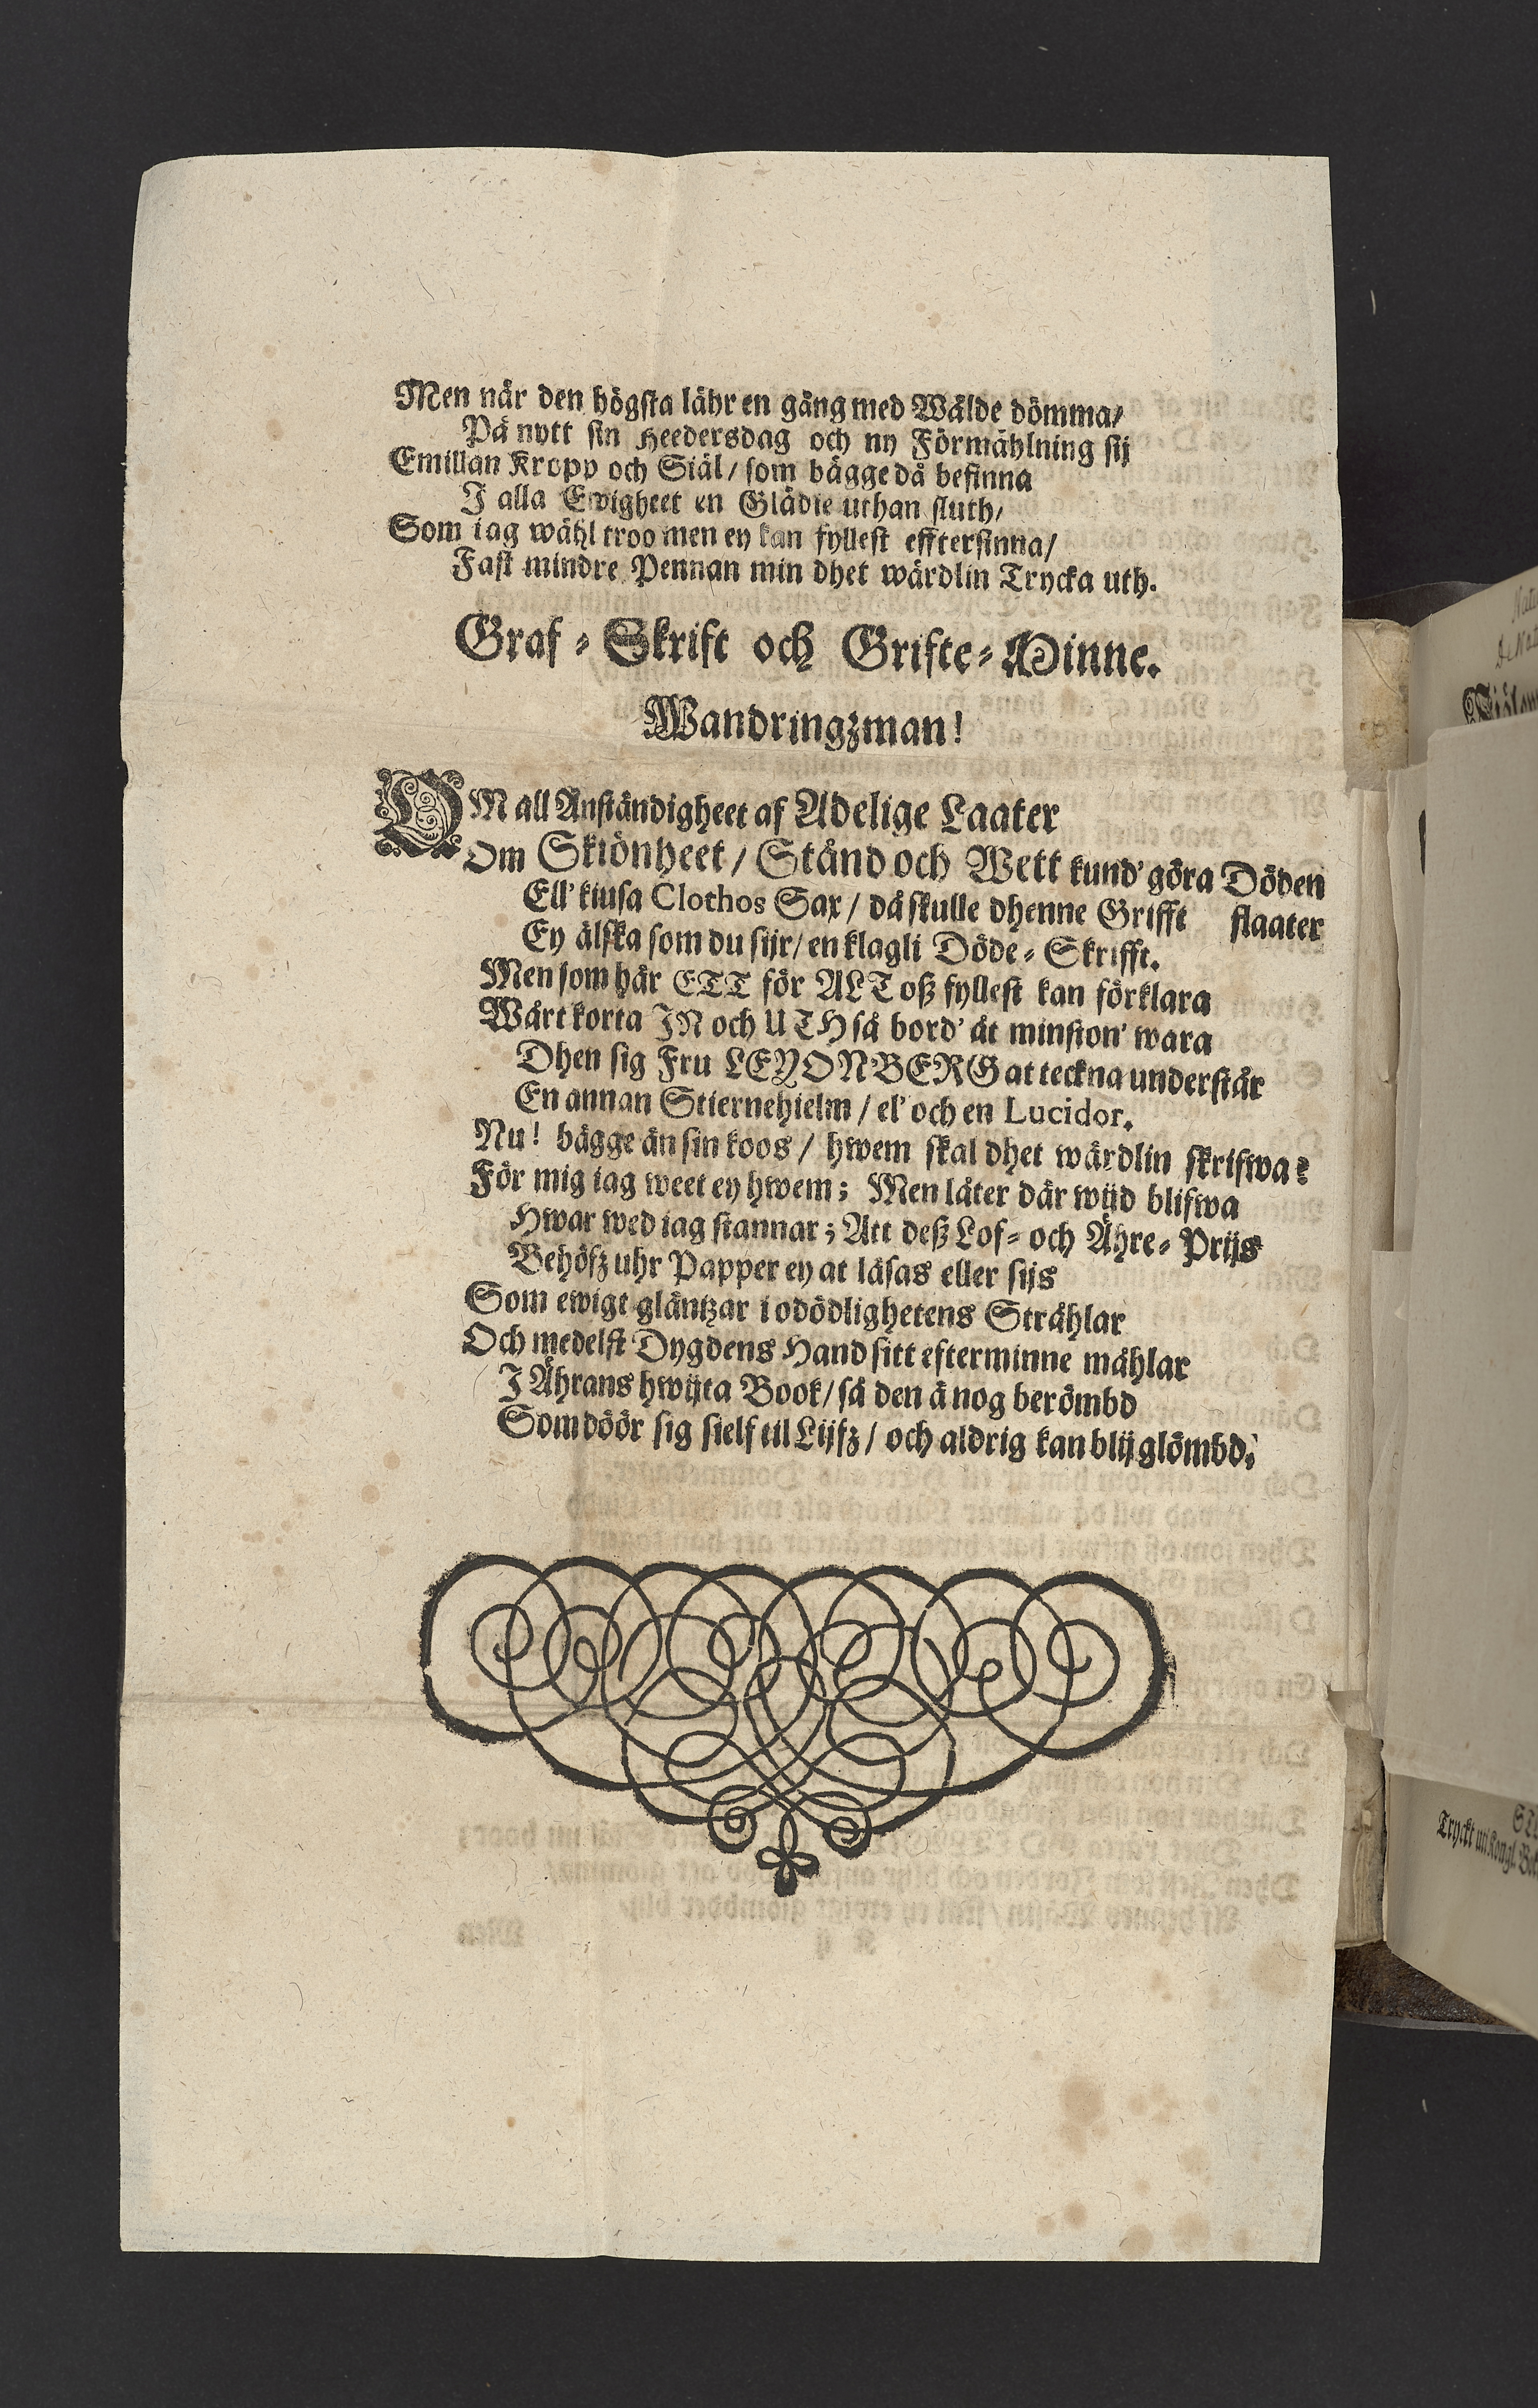 Men når den högsta lähr en gång med Wälde dömma/
På nytt sin Heedersdag och ny Förmählning sij
Emillan Kropp och Siäl/ som bägge då befinna
I alla Ewigheet en Glädie uthan sluth/
Som iag wähl troo men ey kan fyllest efftersinna/
Fast mindre Pennan min dhet wärdlin Trycka uth.
Graf-Skrift och Grifte-Minne.
Wandringzman!
OM all Anständigheet af Adelige Laater
Om Skiönheet/ Stånd och Wett kund' göra Döden
slaater
Ell' kiusa Clothos Sax/ då skulle dhenne Grifft
Ey älska som du sijr/ en klagli Döde-Skrifft.
Men som här ETT för ALT oß fyllest kan förklara
Wårt korta IN och UTH så bord' åt minston' wara
Dhen sig Fru LEYONBERG at teckna understår
En annan Stiernehielm/ el' och en Lucidor.
Nu! bägge än sin koos/ hwem skal dhet wärdlin skrifwa?
För mig iag weet ey hwem; Men låter där wijd blifwa
Hwar wed iag stannar; Att deß Lof- och Ähre-Prijs
Behöfz uhr Papper ey at läsas eller sijs
Som ewigt gläntzar i odödlighetens Strählar
Och medelst Dygdens Hand sitt efterminne mählar
I Ährans hwijta Book/ så den ä nog berömbd
Som döör sig sielf til Lijfz/ och aldrig kan blij glömbd.
Tryckt uti Kongl.